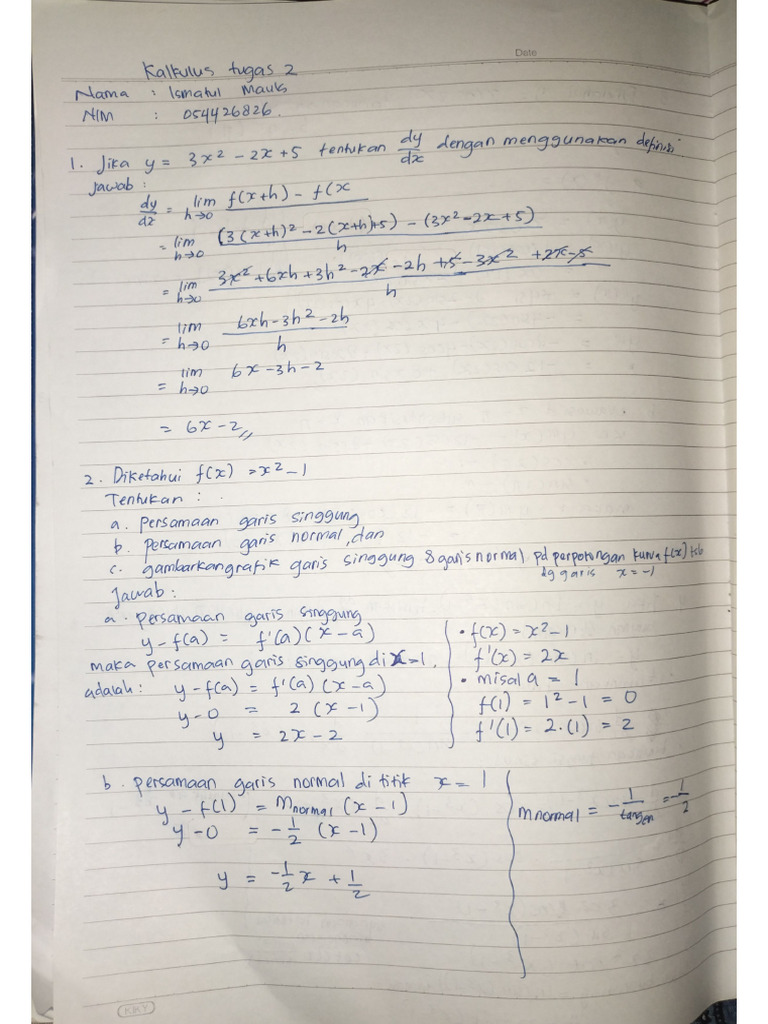 Date
Kalkulus tugas 2
Nama : Ismatul Maula
NIM : 054426826.
1. Jika y = 3x² - 2x + 5 tentukan dy/dx dengan menggunakan definisi
Jawab :
dy/dx = lim h→0 f(x+h) - f(x
= lim h→0 (3(x+h)² - 2(x+h)+5) - (3x² - 2x + 5) / h
= lim h→0 3x² + 6xh + 3h² - 2x - 2h + 5 - 3x² + 2x - 5 / h
= lim h→0 6xh - 3h² - 2h / h
= lim h→0 6x - 3h - 2
= 6x - 2 //
2. Diketahui f(x) = x² - 1
Tentukan :
a. persamaan garis singgung
b. persamaan garis normal, dan
c. gambarkan grafik garis singgung & garis normal pd perpotongan kurva f(x) tsb
dg garis x = -1
Jawab :
a. persamaan garis singgung
y - f(a) = f'(a) (x - a)
maka persamaan garis singgung di x = 1,
adalah : y - f(a) = f'(a) (x - a)
y - 0 = 2 (x - 1)
y = 2x - 2
• f(x) = x² - 1
f'(x) = 2x
• misal a = 1
f(1) = 1² - 1 = 0
f'(1) = 2.(1) = 2
b. persamaan garis normal di titik x = 1
y - f(1) = Mnormal (x - 1)
y - 0 = -1/2 (x - 1)
y = -1/2 x + 1/2
Mnormal = - 1/tangen = -1/2
KKY